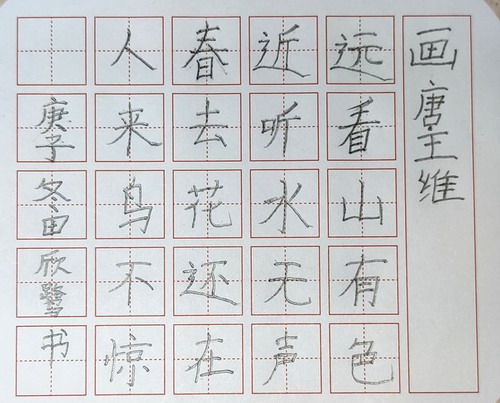 画唐·王维
远看山有色
近听水无声
春去花还在
人来鸟不惊
庚子冬宙欣鹭书